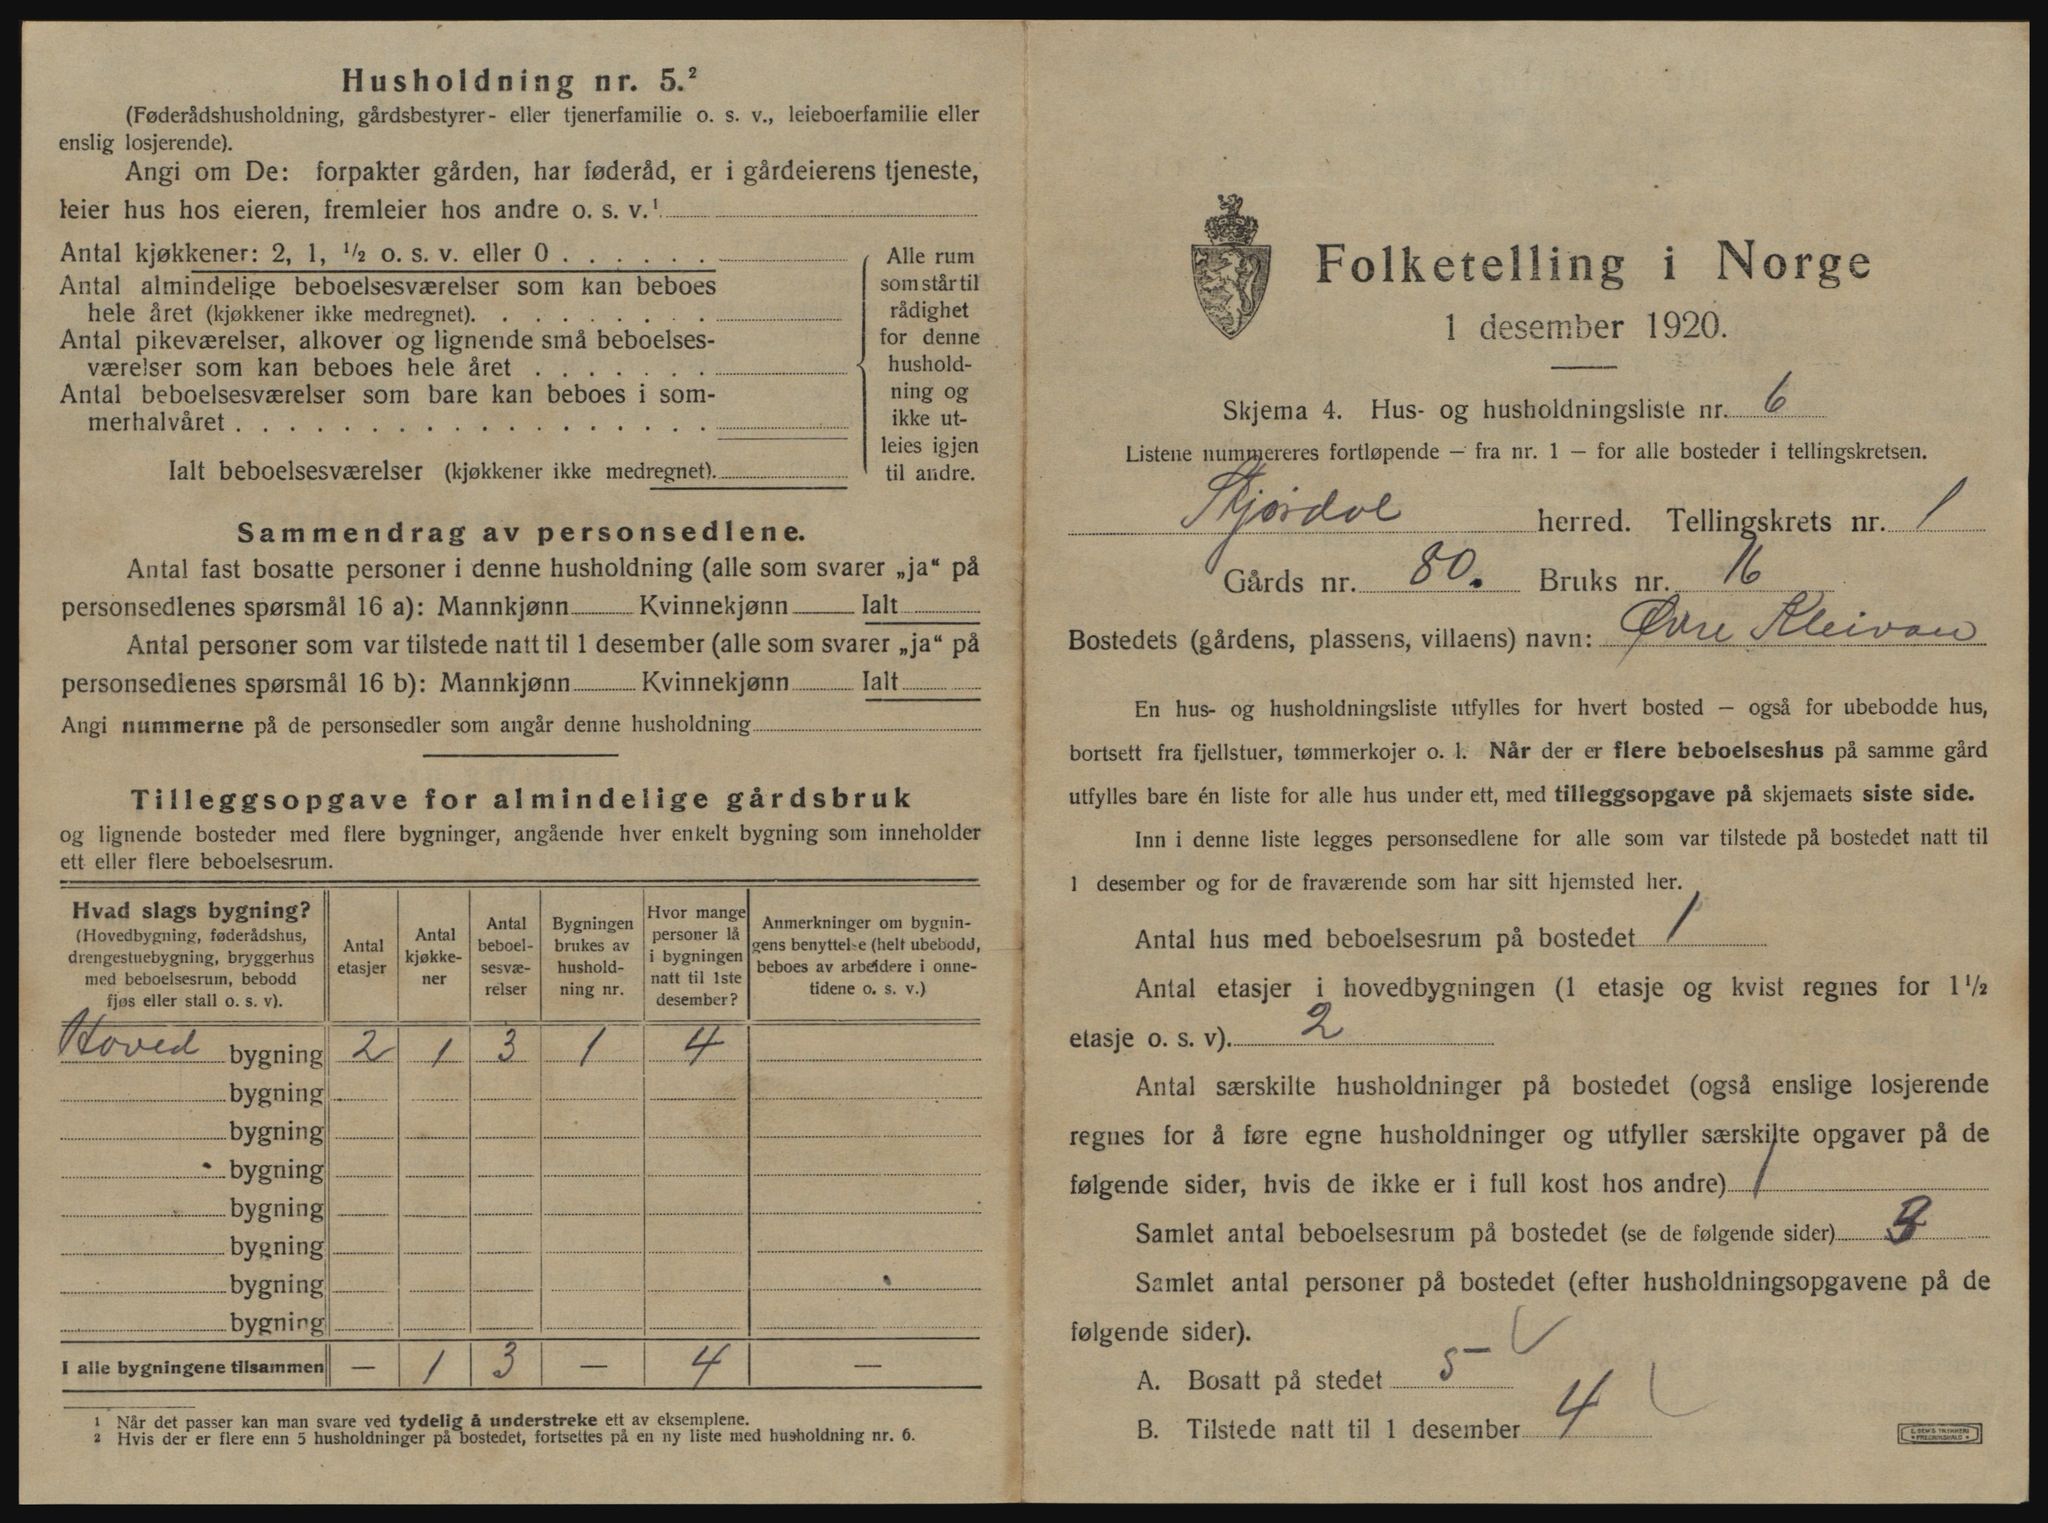 Husholdning nr. 5.²
(Føderådshusholdning, gårdsbestyrer- eller tjenerfamilie o. s. v., leieboerfamilie eller
enslig losjerende).
Angi om De: forpakter gården, har føderåd, er i gårdeierens tjeneste,
leier hus hos eieren, fremleier hos andre o. s. v.¹
Antal kjøkkener: 2, 1, ½ o. s. v. eller 0 . . . . . .
Antal almindelige beboelsesværelser som kan beboes
hele året (kjøkkener ikke medregnet). . . . . . . . .
Antal pikeværelser, alkover og lignende små beboelses-
værelser som kan beboes hele året . . . . . . .
Antal beboelsesværelser som bare kan beboes i som-
merhalvåret . . . . . . . . . . . . . . . . . .
Ialt beboelsesværelser (kjøkkener ikke medregnet).
Alle rum
som står til
rådighet
for denne
hushold-
ning og
ikke ut-
leies igjen
til andre.
Sammendrag av personsedlene.
Antal fast bosatte personer i denne husholdning (alle som svarer „ja“ på
personsedlenes spørsmål 16 a): Mannkjønn Kvinnekjønn Ialt
Antal personer som var tilstede natt til 1 desember (alle som svarer „ja“ på
personsedlenes spørsmål 16 b): Mannkjønn Kvinnekjønn Ialt
Angi nummerne på de personsedler som angår denne husholdning
Tilleggsopgave for almindelige gårdsbruk
og lignende bosteder med flere bygninger, angående hver enkelt bygning som inneholder
ett eller flere beboelsesrum.
Hvad slags bygning?
(Hovedbygning, føderådshus,
drengestuebygning, bryggerhus
med beboelsesrum, bebodd
fjøs eller stall o. s. v).
Antal
etasjer
Antal
kjøkke-
ner
Antal
beboel-
sesvæ-
relser
Bygningen
brukes av
hushold-
ning nr.
Hvor mange
personer lå
i bygningen
natt til 1ste
desember?
Anmerkninger om bygnin-
gens benyttelse (helt ubebodd,
beboes av arbeidere i onne-
tidene o. s. v.)
Hoved bygning 2 1 3 1 4
bygning
bygning
bygning
bygning
bygning
bygning
bygning
I alle bygningene tilsammen — 1 3 — 4 —
1 Når det passer kan man svare ved tydelig å understreke ett av eksemplene.
2 Hvis der er flere enn 5 husholdninger på bostedet, fortsettes på en ny liste med husholdning nr. 6.
Folketelling i Norge
1 desember 1920.
Skjema 4. Hus- og husholdningsliste nr. 6
Listene nummereres fortløpende — fra nr. 1 — for alle bosteder i tellingskretsen.
Stjørdal herred. Tellingskrets nr. 1
Gårds nr. 80. Bruks nr. 16
Bostedets (gårdens, plassens, villaens) navn: Øvre Kleivan
En hus- og husholdningsliste utfylles for hvert bosted — også for ubebodde hus,
bortsett fra fjellstuer, tømmerkojer o. l. Når der er flere beboelseshus på samme gård
utfylles bare én liste for alle hus under ett, med tilleggsopgave på skjemaets siste side.
Inn i denne liste legges personsedlene for alle som var tilstede på bostedet natt til
1 desember og for de fraværende som har sitt hjemsted her.
Antal hus med beboelsesrum på bostedet 1
Antal etasjer i hovedbygningen (1 etasje og kvist regnes for 1½
etasje o. s. v). 2
Antal særskilte husholdninger på bostedet (også enslige losjerende
regnes for å føre egne husholdninger og utfyller særskilte opgaver på de
følgende sider, hvis de ikke er i full kost hos andre) 1
Samlet antal beboelsesrum på bostedet (se de følgende sider) 3
Samlet antal personer på bostedet (efter husholdningsopgavene på de
følgende sider).
A. Bosatt på stedet 5
B. Tilstede natt til 1 desember 4